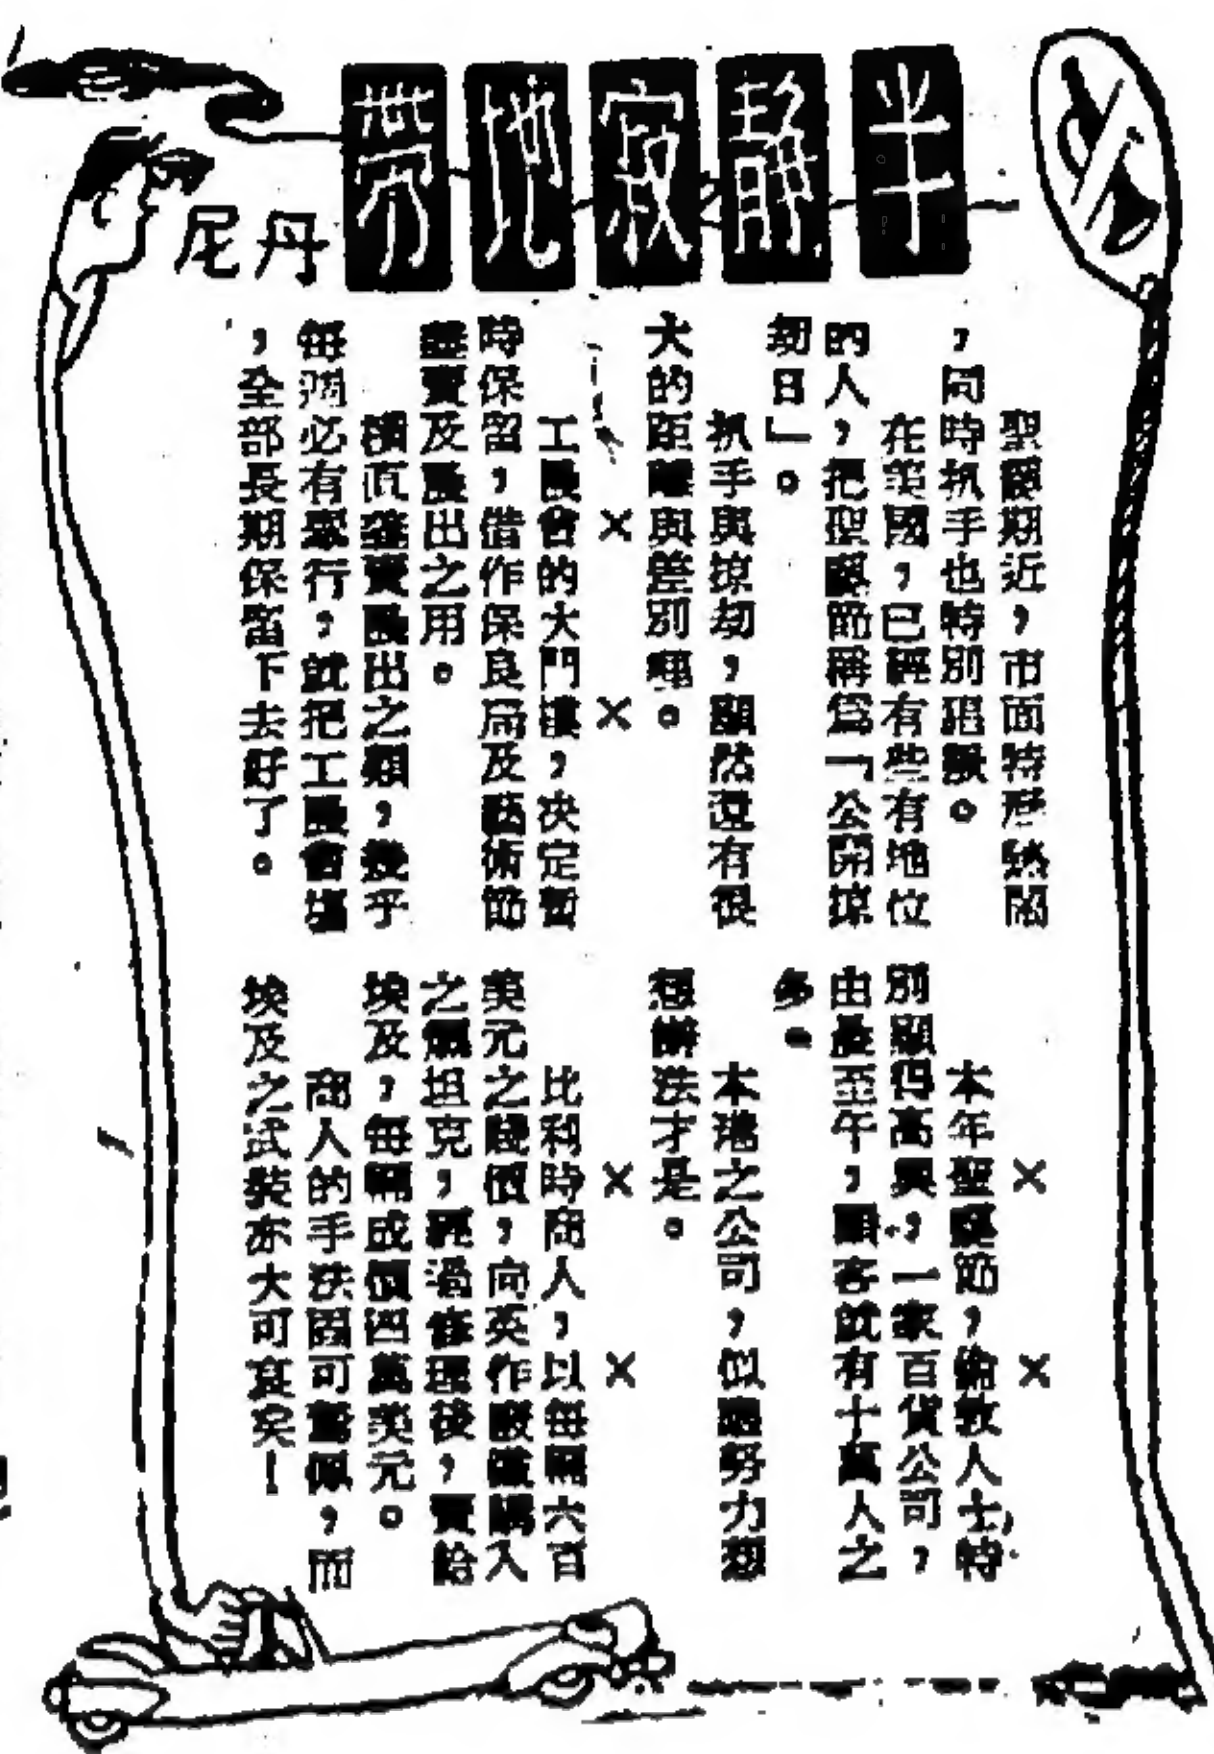 半靜寂地帶
丹尼
聖誕期近，市面特形熱鬧
，同時扒手也特別猖獗。
在英國，已經有些有地位
的人，把聖誕節稱爲「公開掠
刼日」。
扒手與掠刼，顯然還有很
大的距離與差別哩。
×　×
工展會的大門樓，决定暫
時保留，借作保良局及藝術節
義賣及展出之用。
橫直義賣展出之類，幾乎
每週必有舉行，就把工展會場
，全部長期保留下去好了。
×　×
本年聖誕節，倫敦人士特
別顯得高興，一家百貨公司，
由晨至午，顧客就有十萬人之
多。
本港之公司，似應努力想
想辦法才是。
×　×
比利時商人，以每輛六百
美元之賤價，向英作廢鐵購入
之爛坦克，經過修理後，賣給
埃及，每輛成價四萬美元。
商人的手法固可驚佩，而
埃及之試裝亦大可哀矣！